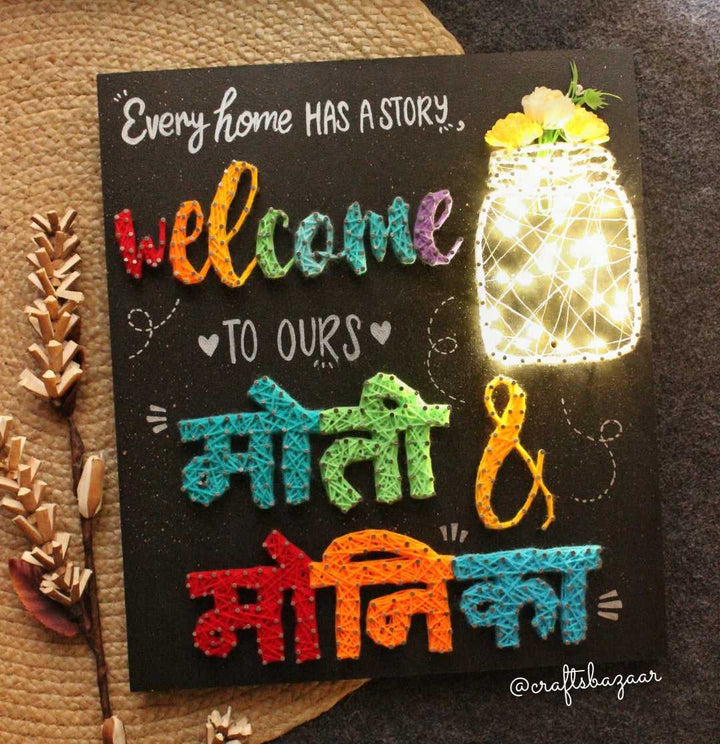 Every home HAS A STORY,
welcome
TO OURS
मोती &
मोनिका
@craftsbazaar